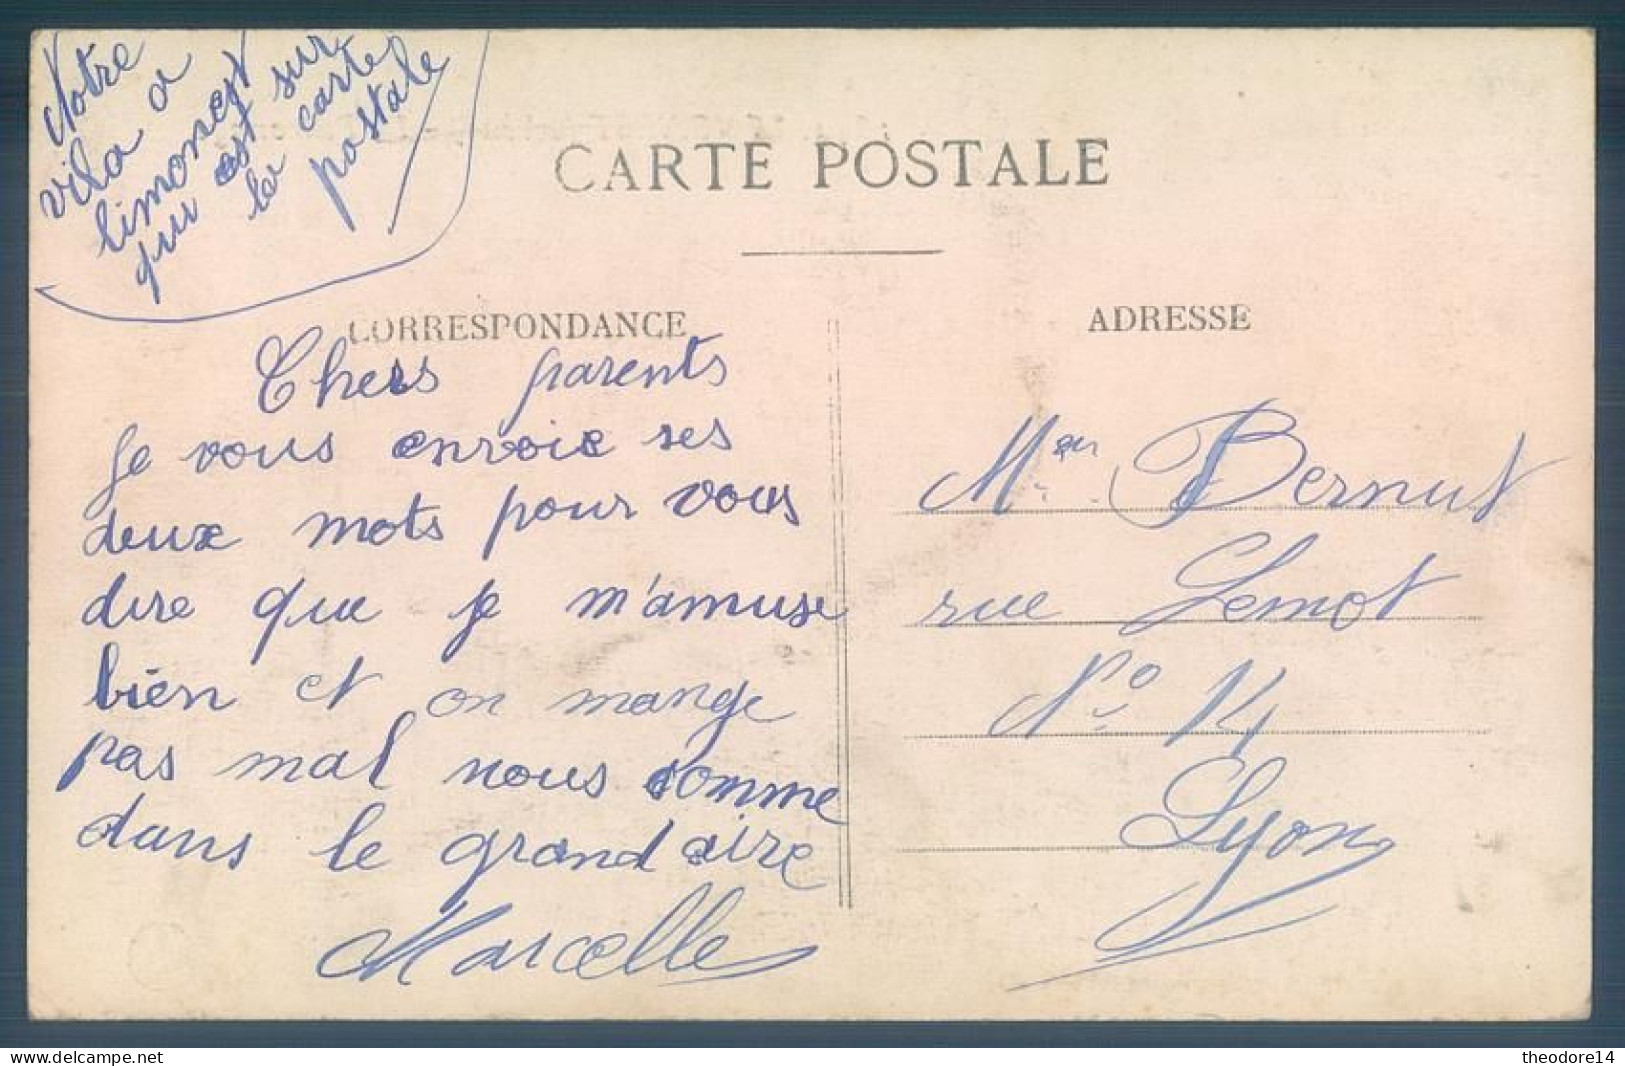 Notre
vila a
limonest
qui est sur
la carte
postale
CARTE POSTALE
CORRESPONDANCE
Chers parents
Je vous envoie ses
deux mots pour vous
dire que je m'amuse
bien et on mange
pas mal nous somme
dans le grand aire
Marcelle
ADRESSE
Bernut
rue Lemot
No 14
Lyon
theodore14